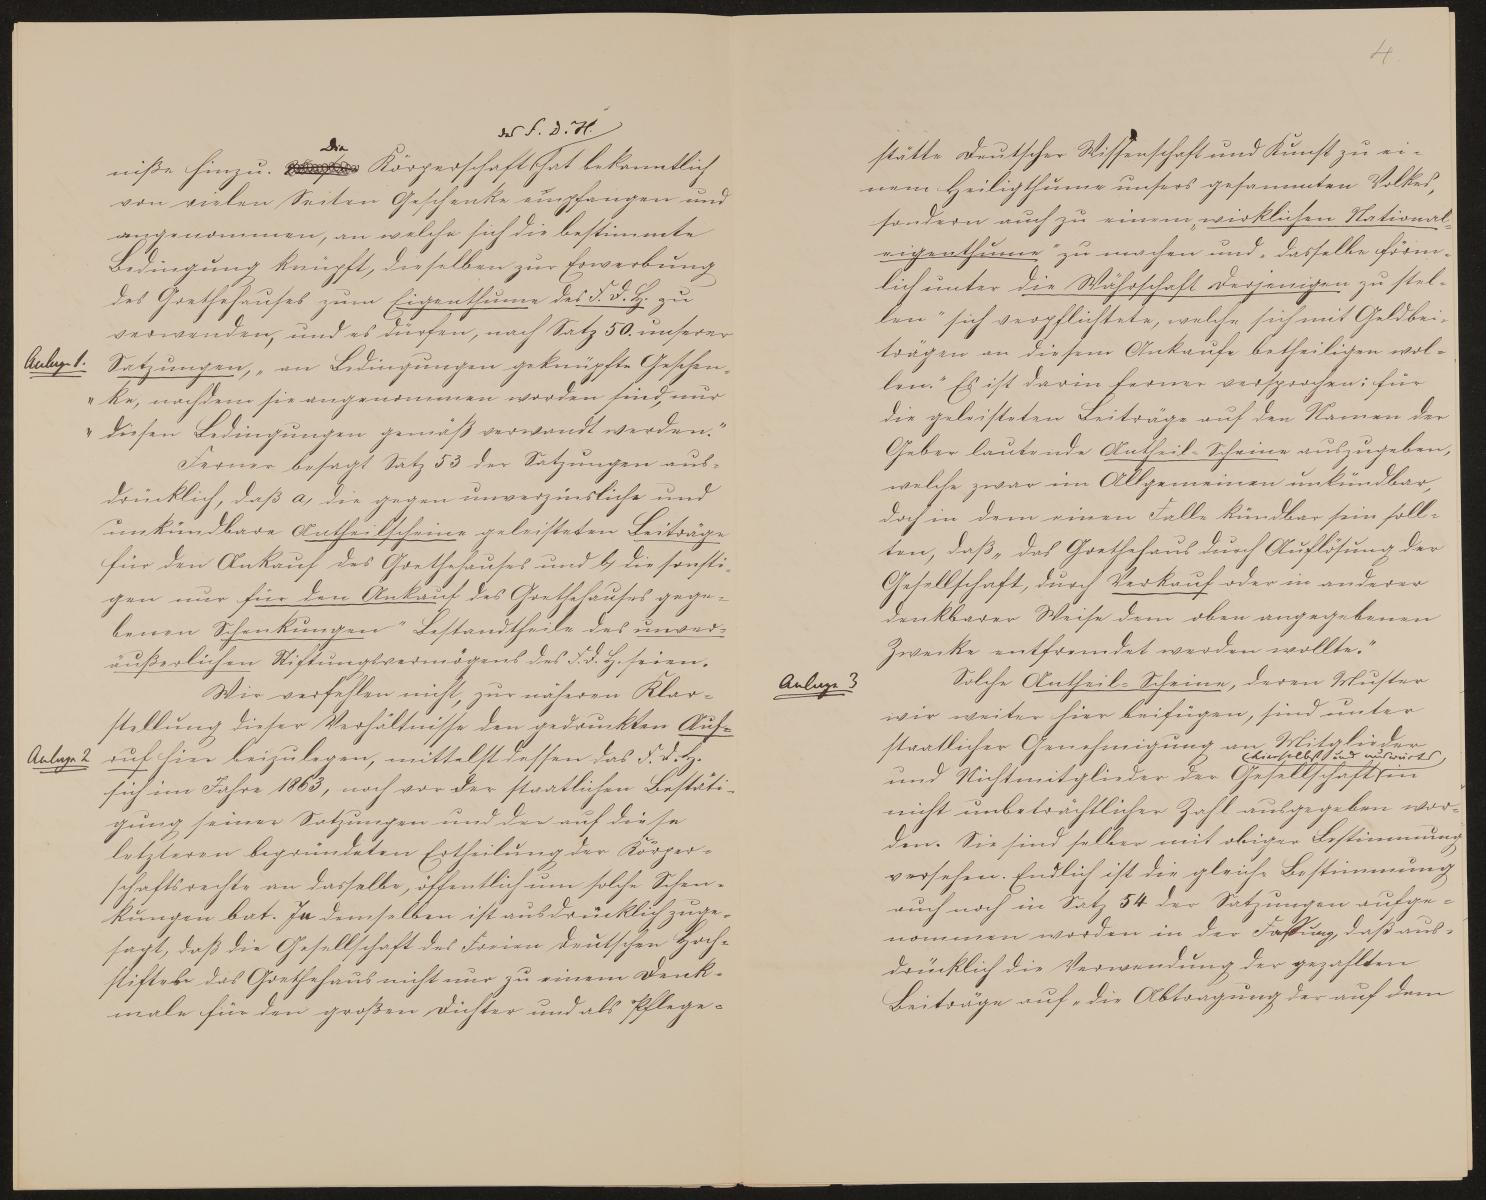 des F. D. H.
Die
niße hinzu. Körperschaft hat bekanntlich
von vielen Seiten Geschenke empfangen und
angenommen, an welche sich die bestimmte
Bedingung knüpft, dieselben zur Erwerbung
des Goethehauses zum Eigenthume des F. D. H. zu
verwenden, und es dürfen, nach Satz 50. unserer
Anlage 1.
Satzungen, „an Bedingungen geknüpfte Geschen-
„ke, nachdem sie angenommen worden sind, nur
„diesen Bedingungen gemäß verwandt werden.“
Ferner besagt Satz 53 der Satzungen aus-
drücklich, daß a, die gegen unverzinsliche und
unkündbare Antheilscheine geleisteten Beiträge
für den Ankauf des Goethehauses und b, die sonsti-
gen nur für den Ankauf des Goethehauses gege-
benen Schenkungen“ Bestandtheile des unver-
äußerlichen Stiftungsvermögens des F. D. H. seien.
Wir verfehlen nicht, zur näheren Klar-
stellung dieser Verhältnisse den gedruckten Auf-
Anlage 2
ruf hier beizulegen, mittelst dessen das F. D. H.
sich im Jahre 1863, noch vor der staatlichen Bestäti-
gung seiner Satzungen und der auf diese
letzteren begründeten Ertheilung der Körper-
schaftsrechte an dasselbe, öffentlich um solche Schen-
kungen bat. In demselben ist ausdrücklich zuge-
sagt, daß die Gesellschaft des Freien Deutschen Hoch-
stiftes das Goethehaus nicht nur zu einem Denk-
male für den großen Dichter und als Pflege-
4
stätte Deutscher Wissenschaft und Kunst zu ei-
nem Heiligthume unsers gesammten Volkes,
sondern auch zu einem „wirklichen National-
eigenthume“ zu machen und „dasselbe förm-
lich unter die Währschaft Derjenigen zu stel-
len“ sich verpflichtete, welche sich mit Geldbei-
trägen an diesem Ankaufe betheiligen wol-
len.“ Es ist darin ferner versprochen: für
die geleisteten Beiträge auf den Namen der
Geber lautende Antheil-Scheine auszugeben,
welche zwar im Allgemeinen unkündbar,
doch in dem einen Falle kündbar sein soll-
ten, daß „das Goethehaus durch Auflösung der
Gesellschaft, durch Verkauf oder in anderer
denkbarer Weise dem oben angegebenen
Zwecke entfremdet werden wollte.“
Anlage 3
Solche Antheil-Scheine, deren Muster
wir weiter hier beifügen, sind unter
staatlicher Genehmigung an Mitglieder
hierselbst und auswärts,
und Nichtmitglieder der Gesellschaft in
nicht unbeträchtlicher Zahl ausgegeben wor-
den. Sie sind selber mit obiger Bestimmung
versehen. Endlich ist die gleiche Bestimmung
auch noch in Satz 54 der Satzungen aufge-
nommen worden in der Fassung, daß aus-
drücklich die Verwendung der gezahlten
Beiträge auf „die Abtragung der auf dem